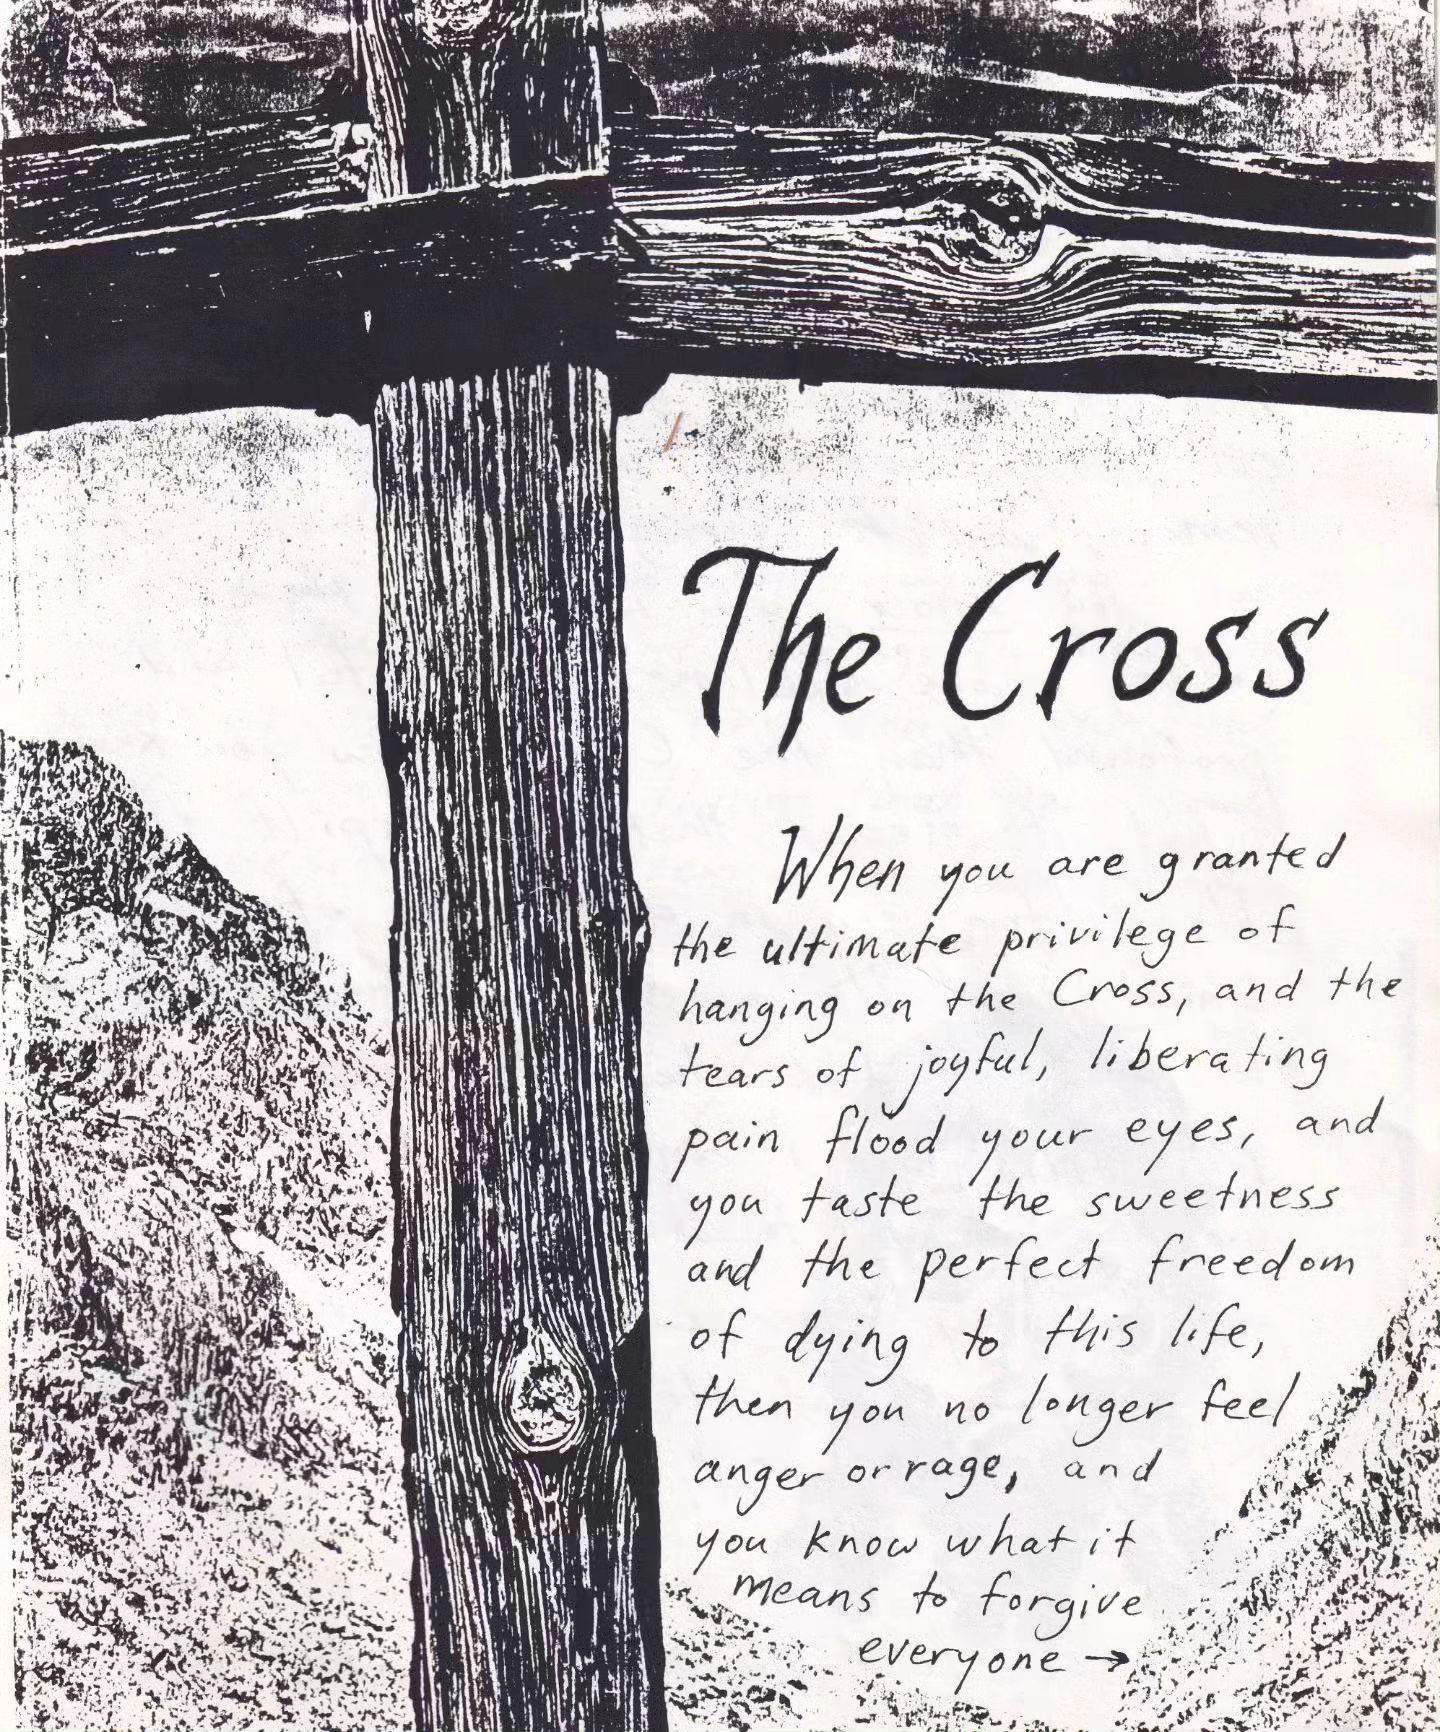 The Cross
When you are granted
the ultimate privilege of
hanging on the Cross, and the
tears of joyful, liberating
pain flood your eyes, and
you taste the sweetness
and the perfect freedom
of dying to this life,
then you no longer feel
anger or rage, and
you know what it
means to forgive
everyone →